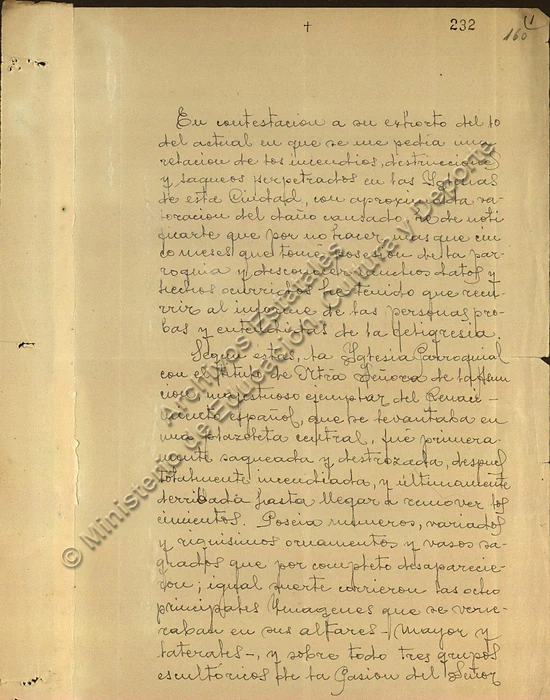 232
(1
160
†
En contestacion a su exhorto del 10
del actual en que se me pedia una
relacion de los incendios, destrucciones
y saqueos perpetrados en las Yglesias
de esta Ciudad, con aproximada va-
loracion del daño causado, he de noti-
ficarle que por no hacer mas que cin-
co meses que tomé posesion de la pa-
rroquia y desconocer muchos datos y
hechos ocurridos he tenido que recu-
rrir al informe de las personas pro-
bas y entendidas de la feligresia.
Segun estas, la Yglesia Parroquial
con el titulo de Ntra Señora de la Asun-
cion, majestuoso ejemplar del Renaci-
miento español, que se levantaba en
una plazoleta central, fué primera-
mente saqueada y destrozada, despues
totalmente incendiada, y últimamente
derribada hasta llegar a remover los
cimientos. Poseia numeros, variados
y riquisimos ornamentos y vasos sa-
grados que por completo desaparecie-
ron; igual suerte corrieron las ocho
principales Ymagenes que se vene-
raban en sus altares - Mayor y
laterales -, y sobre todo tres grupos
escultóricos de la Pasion del Señor
© Ministerio de Educación, Cultura y Deporte
Archivos Estatales